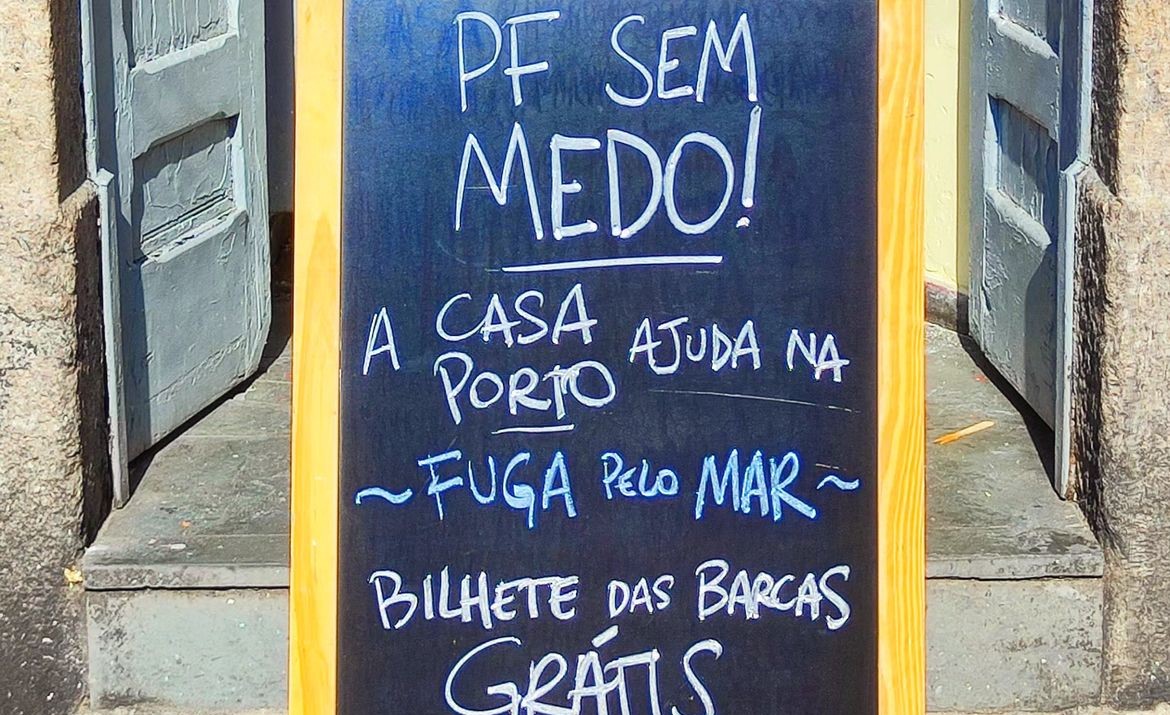 PF SEM
MEDO!
A CASA PORTO AJUDA NA
~ FUGA PELO MAR ~
BILHETE DAS BARCAS
GRÁTIS